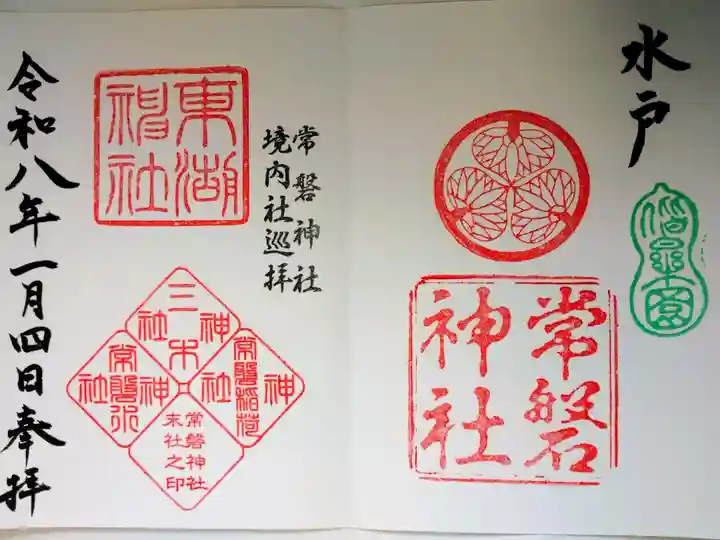 水戸
偕楽園
常磐神社
常磐神社
境内社巡拝
東湖神社
三木神社
常磐稲荷神社
常磐水神社
常磐神社
末社之印
令和八年一月四日奉拝